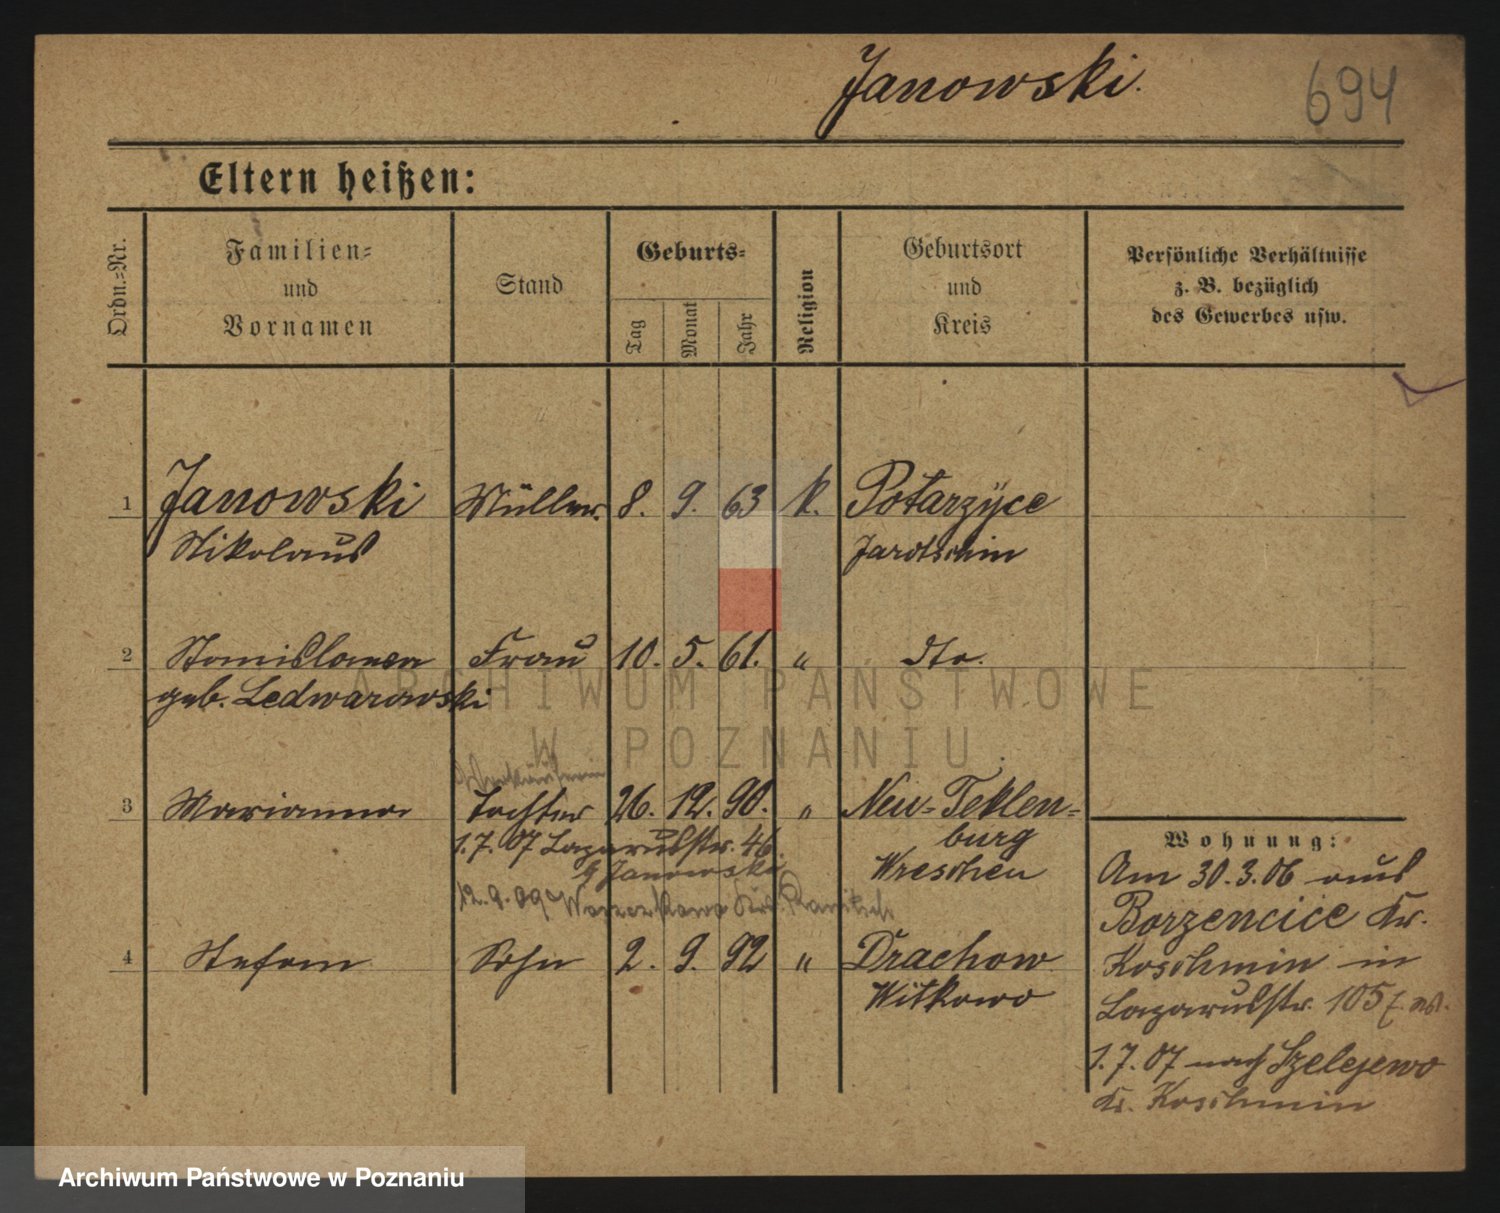 Janowski.
694
Eltern heißen:
Ordn.-Nr.
Familien-
und
Vornamen
Stand
Geburts-
Tag
Monat
Jahr
Religion
Geburtsort
und
Kreis
Persönliche Verhältnisse
z. B. bezüglich
des Gewerbes usw.
1 Janowski Müller. 8. 9. 63 k. Potarzyce
Nikolaus Jarotschin
2 Stanislawa Frau 10. 5. 61. " dto.
geb. Ledwarowski
3 Marianna Tochter 26. 12. 90. " Neu-Teklen-
burg
1.7.07 Lazarusstr. 46.
Wreschen
b/ Janowski
12.9.09
4 Stefan Sohn 2. 9. 92 " Drachow
Witkowo
Wohnung:
Am 30.3.06 aus
Borzencice Kr.
Koschmin in
Lazarusstr. 105
1.7.07 nach Szelejewo
Kr. Koschmin
ARCHIWUM PAŃSTWOWE
W POZNANIU
Archiwum Państwowe w Poznaniu